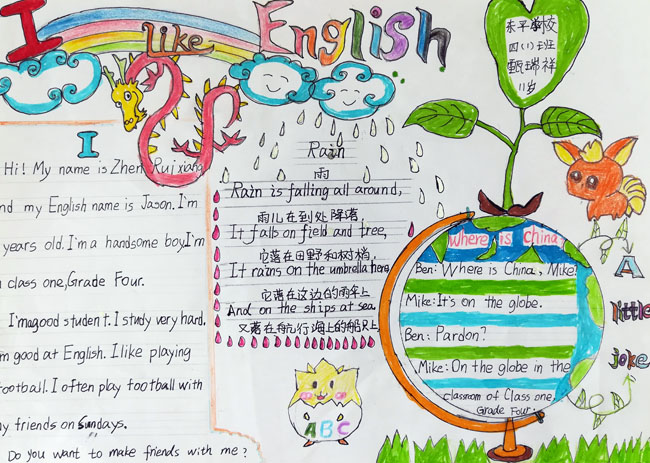 I like English
东平学校
四(1)班
甄瑞祥
11岁
I
Hi! My name is Zhen Ruixiang
nd my English name is Jason. I'm
years old. I'm a handsome boy, I'm
class one, Grade Four.
I'm a good student. I study very hard.
m good at English. I like playing
football. I often play football with
y friends on Sundays.
Do you want to make friends with me?
Rain
雨
Rain is falling all around,
雨儿在到处降落,
It falls on field and tree,
它落在田野和树梢,
It rains on the umbrella here,
它落在这边的雨伞上
And on the ships at sea.
又落在航行海上的船只上
ABC
Where is China
Ben: Where is China, Mike
Mike: It's on the globe.
Ben: Pardon?
Mike: On the globe in the
classroom of Class one,
Grade Four.
A
little
joke